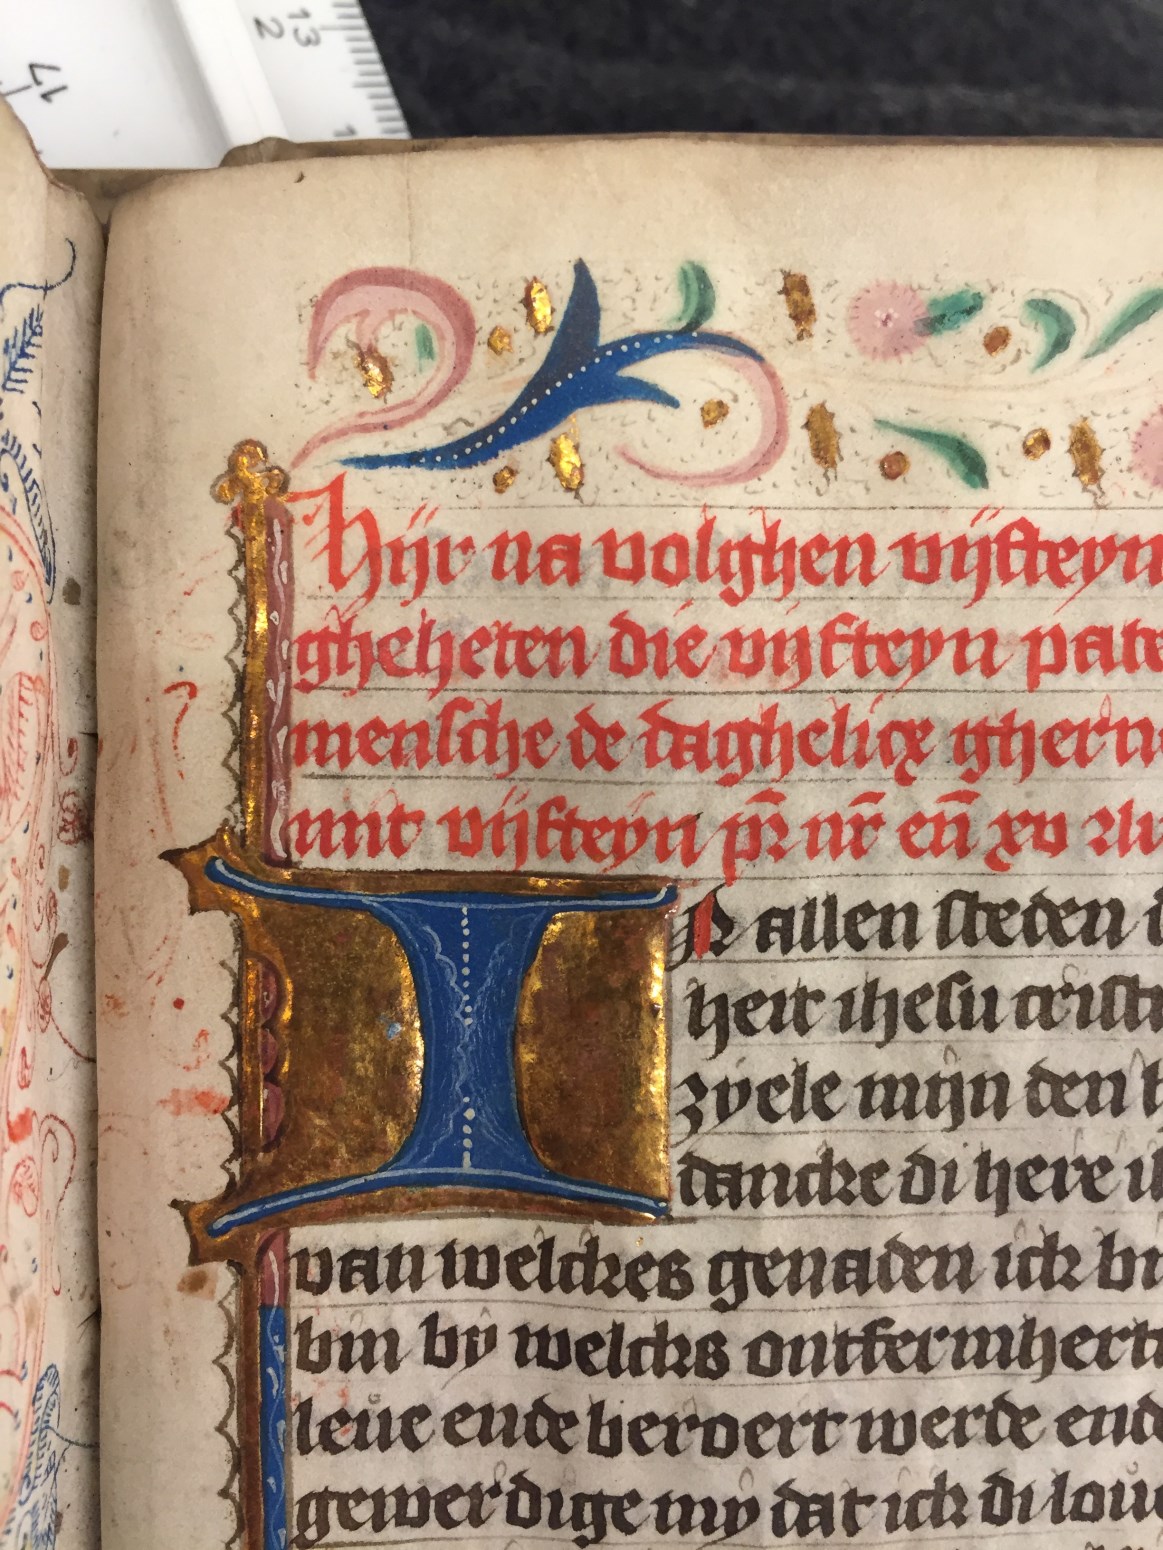 13
2
17
1
Hijr na volghen vijfteyn
gheheten die vijfteyn pate
mensche de daghelicx gherne
mit vijfteyn pr̄ nr̄ en̄ xv
IN allen steden
heit ihesu cristi
zyele mijn den
dancke di here
van welckes genaden ick
bin by welcks ontfermhert
leue ende beroert werde ende
gewerdige my dat ick di loue